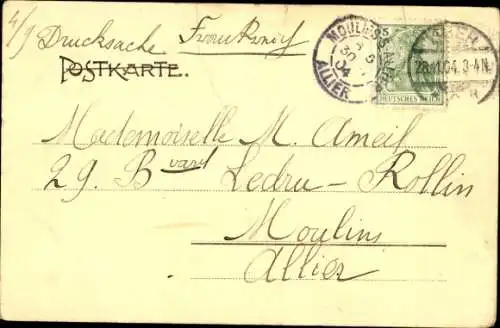 4/9
Drucksache Frankreich
POSTKARTE.
MOULINS S ALLIER
30 04
ALLIER
5
DEUTSCHES REICH
28.11.04. 3-4N.
Mademoiselle M. Ameil
29. Bvard Ledru-Rollin
Moulins
Allier